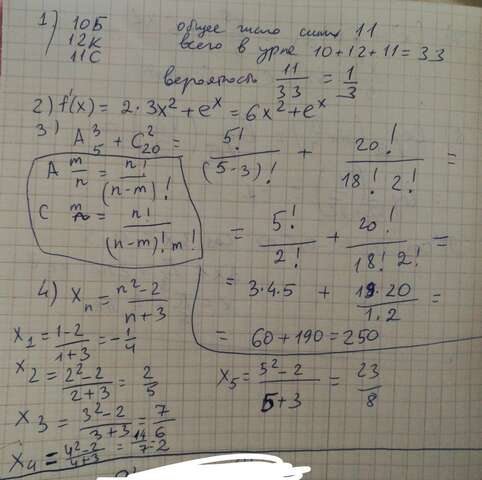 1) 10Б общее число синих 11
12К всего в урне 10+12+11=33
11С
вероятность 11/33 = 1/3
2) f'(x) = 2·3x² + eˣ = 6x² + eˣ
3) A₅³ + C₂₀² = 5!/(5-3)! + 20!/(18! 2!) =
A m/n = n!/(n-m)!
C m/n = n!/((n-m)! m!)
= 5!/2! + 20!/(18! 2!) =
= 3·4·5 + (19·20)/(1·2) =
= 60+190=250
4) Xₙ = (n²-2)/(n+3)
X₁ = (1-2)/(1+3) = -1/4
X₂ = (2²-2)/(2+3) = 2/5
X₃ = (3²-2)/(3+3) = 7/6
X₄ = (4²-2)/(4+3) = 14/7 = 2
X₅ = (5²-2)/(5+3) = 23/8